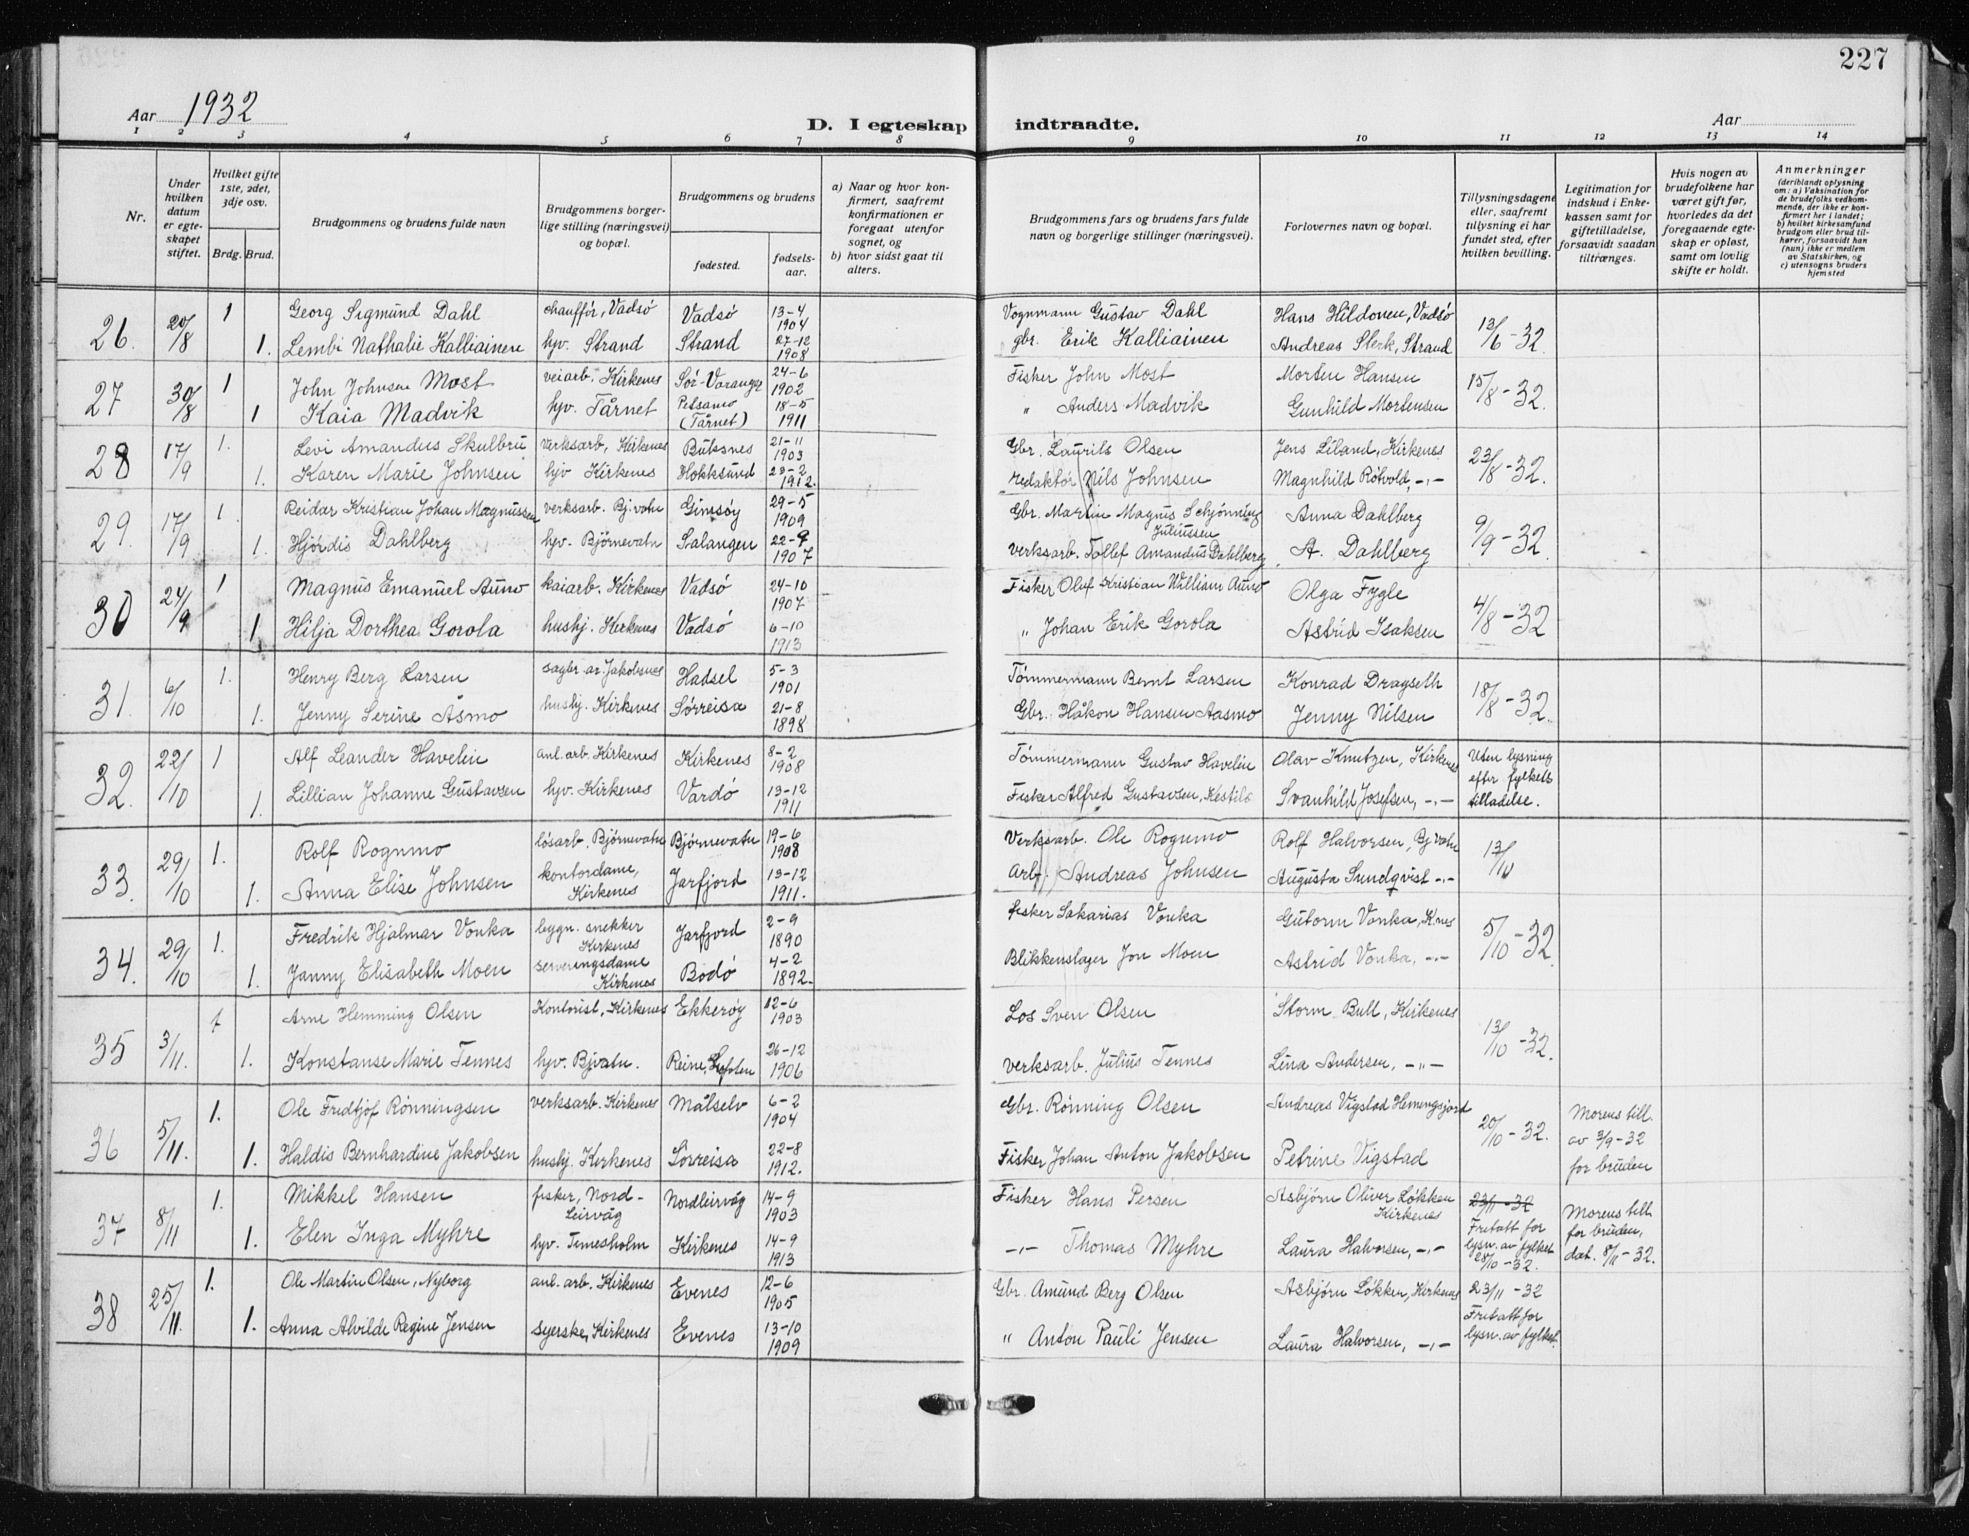 227
Aar 1932
D. I egteskap indtraadte.
Aar
1 2 3 4 5 6 7 8 9 10 11 12 13 14
Nr.
Under hvilken datum er egteskapet stiftet.
Hvilket gifte 1ste, 2det, 3dje osv.
Brdg. Brud.
Brudgommens og brudens fulde navn
Brudgommens borgerlige stilling (næringsvei) og bopæl.
Brudgommens og brudens
fødested.
fødselsaar.
a) Naar og hvor konfirmert, saafremt konfirmationen er foregaat utenfor sognet, og
b) hvor sidst gaat til alters.
Brudgommens fars og brudens fars fulde navn og borgerlige stillinger (næringsvei).
Forlovernes navn og bopæl.
Tillysningsdagene eller, saafremt tillysning ei har fundet sted, efter hvilken bevilling.
Legitimation for indskud i Enkekassen samt for giftetilladelse, forsaavidt saadan tiltrænges.
Hvis nogen av brudefolkene har været gift før, hvorledes da det foregaaende egteskap er opløst, samt om lovlig skifte er holdt.
Anmerkninger
(deriblandt oplysning om: a) Vaksination for de brudefolks vedkommende, der ikke er konfirmert her i landet; b) hvilket kirkesamfund brudgom eller brud tilhører, forsaavidt han (hun) ikke er medlem av Statskirken, og c) utensogns bruders hjemsted
26. 20/8 1 Georg Sigmund Dahl chauffør, Vadsø Vadsø 13-4 1904 Vognmann Gustav Dahl Hans Hildonen, Vadsø 13/6-32
1. Lembi Nathalie Kalliainen hjv. Strand Strand 27-12 1908 gbr. Erik Kalliainen Andreas Sterk, Strand
27 30/8 1 John Johnsen Most veiarb. Kirkenes Sør-Varanger 24-6 1902 Fisker John Most Morten Hansen 15/8-32.
1 Kaia Madvik hjv. Tårnet Petsamo (Tårnet) 18-5 1911 " Anders Madvik Gunhild Mortensen
28 17/9 1. Levi Amandus Skulbru verksarb, Kirkenes Buksnes 21-11 1903 Gbr. Laurits Olsen Jens Liland, Kirkenes 23/8-32.
1. Karen Marie Johnsen hjv Kirkenes Hokksund 23-2 1912. redaktør Nils Johnsen Magnhild Røtvold, -"-
29. 17/9 1. Reidar Kristian Johan Magnussen verksarb. Bj.vatn Gimsøy 29-5 1909 Gbr. Martin Magnus Schjønning Juliussen Anna Dahlberg 9/9-32
1. Hjørdis Dahlberg hjv. Bjørnevatn Salangen 22-9 1907 verksarb. Tollef Amandus Dahlberg. A. Dahlberg
30 24/9 1 Magnus Emanuel Auno kaiarb. Kirkenes Vadsø 24-10 1907 Fisker Oluf Kristian William Auno Olga Fygle 4/8-32
1 Hilja Dorthea Gorola hushj. Kirkenes Vadsø 6-10 1913 " Johan Erik Gorola Astrid Isaksen
31. 6/10 1. Henry Berg Larsen sagbr. ar. Jakobsnes Hadsel 5-3 1901 Tømmermann Bernt Larsen Konrad Dragseth 18/8-32.
1. Jenny Serine Åsmo hushj. Kirkenes Sørreisa 21-8 1898 Gbr. Håkon Hansen Aasmo Jenny Nilsen
32. 22/10 1 Alf Leander Havelin anl. arb. Kirkenes Kirkenes 8-2 1908 Tømmermann Gustav Havelin Olav Knutzen, Kirkenes Uten lysning efter fylkets tilladelse.
1. Lillian Johanne Gustavsen hjv. Kirkenes Vardø 13-12 1911 Fisker Alfred Gustavsen, Svanhild Josefsen, -"-
33. 29/10 1. Rolf Rognmo løsarb. Bjørnevatn Bjørnevatn 19-6 1908 Verksarb. Ole Rognmo Rolf Halvorsen, Bj.vatn 13/10
1. Anna Elise Johnsen kontordame, Kirkenes Jarfjord 13-12 1911. Arb. Andreas Johnsen Augusta Sundqvist -"-
34. 29/10 1. Fredrik Hjalmar Vonka bygn. snekker Kirkenes Jarfjord 2-9 1890 fisker Sakarias Vonka Gutorm Vonka, Knes 5/10-32.
1. Janny Elisabeth Moen serveringsdame Kirkenes Bodø 4-2 1892. Blikkenslager Jon Moen Astrid Vonka, -"-
35 3/11. 1 Arne Hemming Olsen Kontorist, Kirkenes Ekkerøy 12-6 1903 Los Sven Olsen Storm Bull, Kirkenes 13/10-32.
1. Konstanse Marie Tennes hjv. Bjvatn. Reine, Lofoten 26-12 1906 verksarb. Julius Tennes Lina Andersen, -"-
36 5/11. 1. Ole Fredtjof Rønningsen verksarb. Kirkenes Målselv 6-2 1904 Gbr. Rønning Olsen Andreas Vigstad Hemingsjord 20/10-32. Morens till. av 3/9-32 for bruden
1. Haldis Bernhardine Jakobsen hushj. Kirkenes Sørreisa 22-8 1912. Fisker Johan Anton Jakobsen Petrine Vigstad
37 8/11 1. Mikkel Hansen fisker, Nord-Leirvåg Nordleirvåg 14-9 1903 Fisker Hans Persen Asbjørn Oliver Løkken Kirkenes 23/11-32 Fritatt for lysn. av fylket 28/10-32. Morens till. for bruden, dat. 8/11-32.
1. Elen Inga Myhre hjv. Timesholm Kirkenes 14-9 1913 -"- Thomas Myhre Laura Halvorsen, -"-
38 25/11. 1. Ole Martin Olsen, Nyborg anl. arb. Kirkenes Evenes 12-6 1905 Gbr. Amund Berg Olsen Asbjørn Løkken, Kirkenes 23/11-32 Fritatt for lysn. av fylket.
1. Anna Alvilde Regine Jensen syerske, Kirkenes Evenes 13-10 1909 " Anton Pauli Jensen Laura Halvorsen, -"-